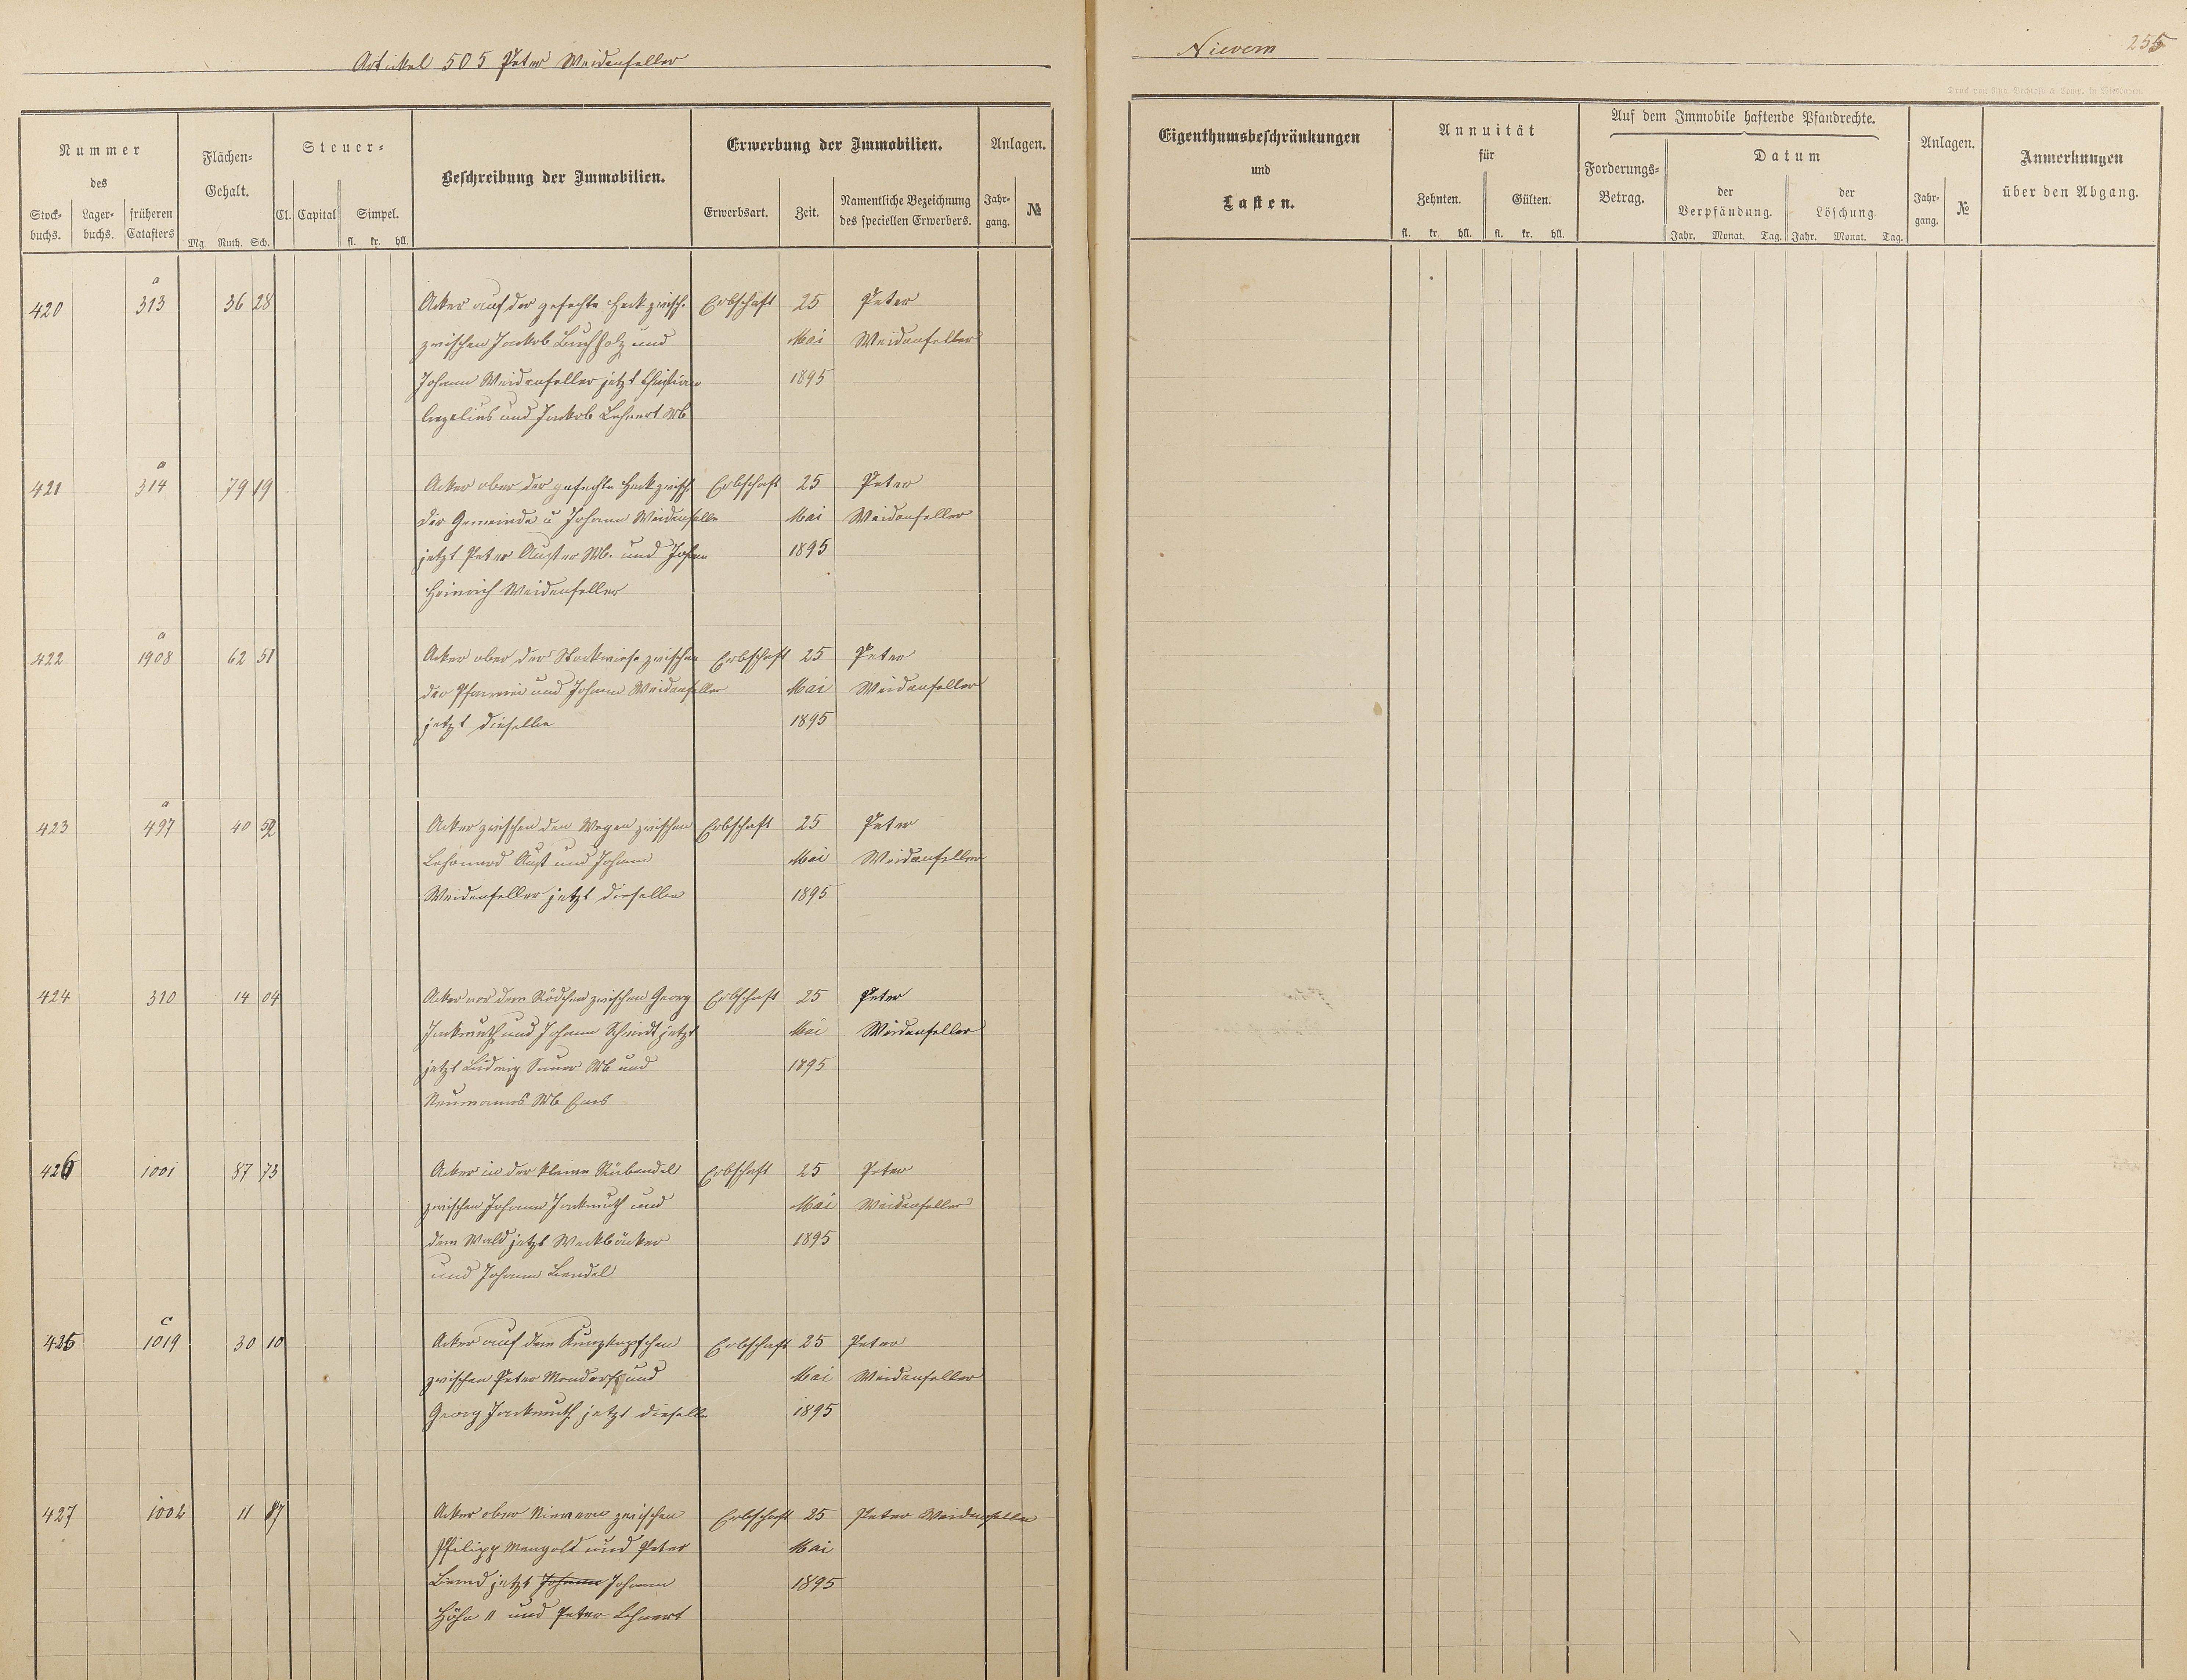 Artikel 505 Peter Weidenfeller
Nievern
255
Druck von Rud. Bechtold & Comp. in Wiesbaden.
Nummer
des
Stock-
buchs.
Lager-
buchs.
früheren
Catasters
Flächen-
Gehalt.
Mg. Ruth. Sch.
Steuer-
Cl. Capital Simpel.
fl. kr. hll.
Beschreibung der Immobilien.
Erwerbung der Immobilien.
Erwerbsart. Zeit.
Namentliche Bezeichnung
des speciellen Erwerbers.
Anlagen.
Jahr-
gang.
№
Eigenthumsbeschränkungen
und
Lasten.
Annuität
für
Zehnten. Gülten.
fl. kr. hll. fl. kr. hll.
Auf dem Immobile haftende Pfandrechte.
Forderungs-
Betrag.
Datum
der
Verpfändung.
der
Löschung.
Jahr. Monat. Tag. Jahr. Monat. Tag.
Anlagen.
Jahr-
gang.
№
Anmerkungen
über den Abgang.
a
420 313 36 28 Acker auf der heck zwisch. Erbschaft 25 Peter
zwischen Jackob Buchholz und Mai Weidenfeller
Johann Weidenfeller jetzt Christian 1895
und Jackob Lehnert Wb
a
421 314 79 19 Acker ober der heck zwisch Erbschaft 25 Peter
der Gemeinde u Johann Weidenfeller Mai Weidenfeller
jetzt Peter Wb. und Johan 1895
Heinrich Weidenfeller
a
422 1908 62 51 Acker ober der Stockwiese zwischen Erbschaft 25 Peter
der Pfarrei und Johann Weidenfeller Mai Weidenfeller
jetzt dieselbe 1895
a
423 497 40 52 Acker zwischen den Wegen zwischen Erbschaft 25 Peter
Aust und Johann Mai Weidenfeller
Weidenfeller jetzt dieselben 1895
424 310 14 04 Acker vor dem Rödchen zwischen Georg Erbschaft 25 Peter
Jackmuth und Johann Schmidt jetzt Mai Weidenfeller
jetzt Ludwig Wb und 1895
Neumanns Wb Ems
426 1001 87 73 Acker in der kleine Erbschaft 25 Peter
zwischen Johann Jackmuth und Mai Weidenfeller
dem Wald jetzt Weckbäcker 1895
und Johann Lendel
c
425 1019 30 10 Acker auf dem Erbschaft 25 Peter
zwischen Peter Mondorf und Mai Weidenfeller
Georg Jackmuth jetzt dieselb 1895
427 1002 11 87 Acker ober Nievern zwischen Erbschaft 25 Peter Weidenfeller
Philipp Mengold und Peter Mai
jetzt Johann Johann 1895
Höhn II und Peter Lehnert